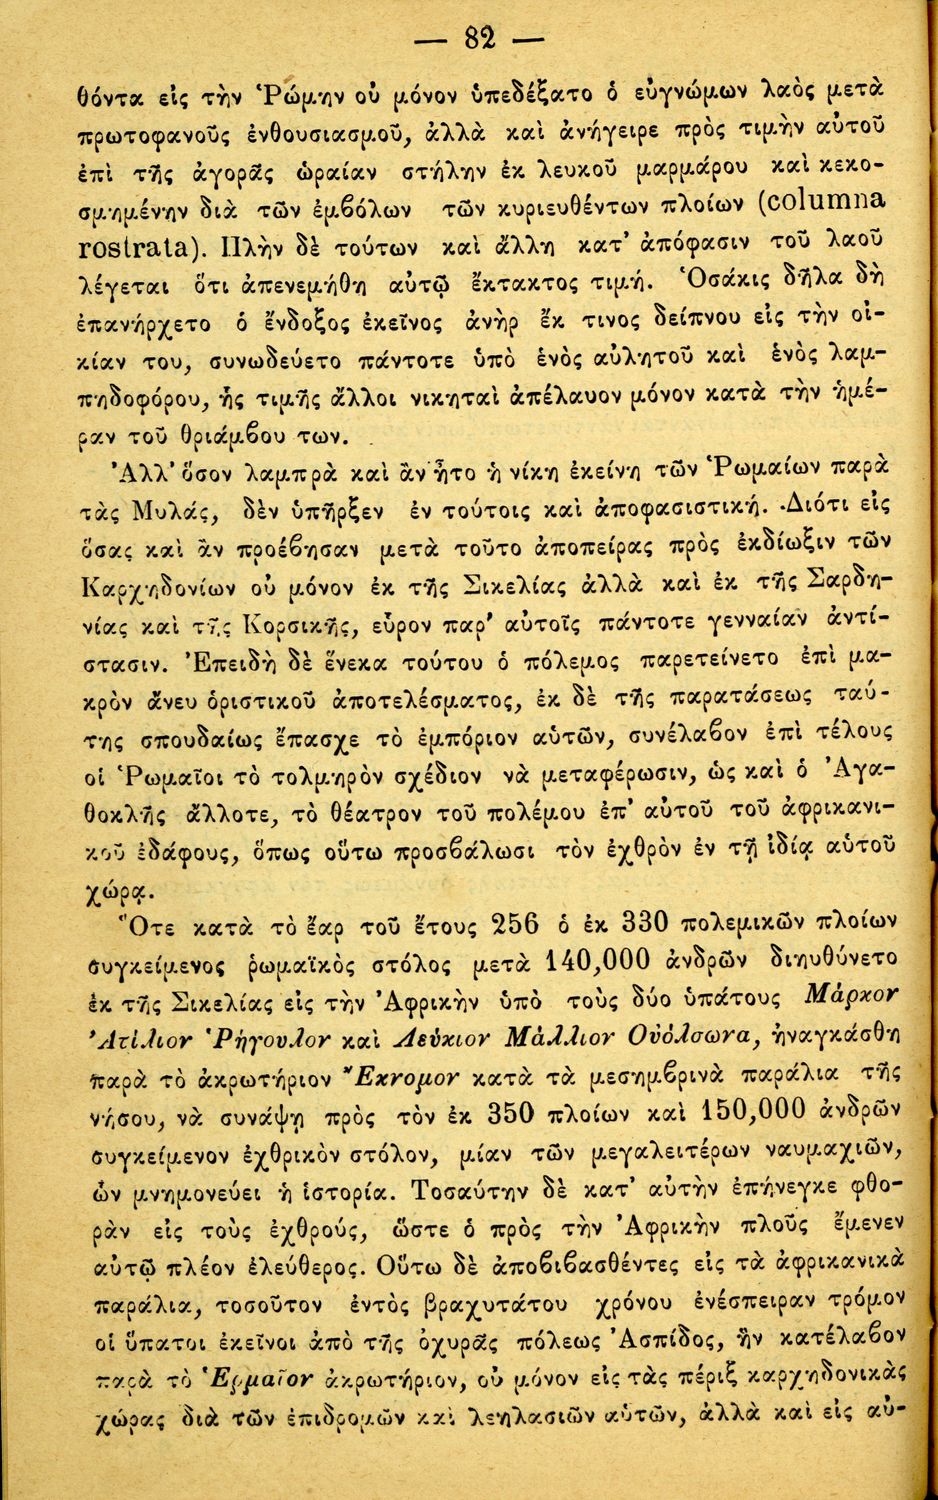 — 82 —
θόντα εἰς τὴν Ῥώμην οὐ μόνον ὑπεδέξατο ὁ εὐγνώμων λαὸς μετὰ
πρωτοφανοῦς ἐνθουσιασμοῦ, ἀλλὰ καὶ ἀνήγειρε πρὸς τιμὴν αὐτοῦ
ἐπὶ τῆς ἀγορᾶς ὡραίαν στήλην ἐκ λευκοῦ μαρμάρου καὶ κεκο-
σμημένην διὰ τῶν ἐμβόλων τῶν κυριευθέντων πλοίων (columna
rostrata). Πλὴν δὲ τούτων καὶ ἄλλη κατ' ἀπόφασιν τοῦ λαοῦ
λέγεται ὅτι ἀπενεμήθη αὐτῷ ἔκτακτος τιμή. Ὁσάκις δῆλα δὴ
ἐπανήρχετο ὁ ἔνδοξος ἐκεῖνος ἀνὴρ ἔκ τινος δείπνου εἰς τὴν οἰ-
κίαν του, συνωδεύετο πάντοτε ὑπὸ ἑνὸς αὐλητοῦ καὶ ἑνὸς λαμ-
πηδοφόρου, ἧς τιμῆς ἄλλοι νικηταὶ ἀπέλαυον μόνον κατὰ τὴν ἡμέ-
ραν τοῦ θριάμβου των.
Ἀλλ' ὅσον λαμπρὰ καὶ ἂν ἦτο ἡ νίκη ἐκείνη τῶν Ῥωμαίων παρὰ
τὰς Μυλάς, δὲν ὑπῆρξεν ἐν τούτοις καὶ ἀποφασιστική. Διότι εἰς
ὅσας καὶ ἂν προέβησαν μετὰ τοῦτο ἀποπείρας πρὸς ἐκδίωξιν τῶν
Καρχηδονίων οὐ μόνον ἐκ τῆς Σικελίας ἀλλὰ καὶ ἐκ τῆς Σαρδη-
νίας καὶ τῆς Κορσικῆς, εὗρον παρ' αὐτοῖς πάντοτε γενναίαν ἀντί-
στασιν. Ἐπειδὴ δὲ ἕνεκα τούτου ὁ πόλεμος παρετείνετο ἐπὶ μα-
κρὸν ἄνευ ὁριστικοῦ ἀποτελέσματος, ἐκ δὲ τῆς παρατάσεως ταύ-
της σπουδαίως ἔπασχε τὸ ἐμπόριον αὑτῶν, συνέλαβον ἐπὶ τέλους
οἱ Ῥωμαῖοι τὸ τολμηρὸν σχέδιον νὰ μεταφέρωσιν, ὡς καὶ ὁ Ἀγα-
θοκλῆς ἄλλοτε, τὸ θέατρον τοῦ πολέμου ἐπ' αὐτοῦ τοῦ ἀφρικανι-
κοῦ ἐδάφους, ὅπως οὕτω προσβάλωσι τὸν ἐχθρὸν ἐν τῇ ἰδίᾳ αὑτοῦ
χώρᾳ.
Ὅτε κατὰ τὸ ἔαρ τοῦ ἔτους 256 ὁ ἐκ 330 πολεμικῶν πλοίων
συγκείμενος ῥωμαϊκὸς στόλος μετὰ 140,000 ἀνδρῶν διηυθύνετο
ἐκ τῆς Σικελίας εἰς τὴν Ἀφρικὴν ὑπὸ τοὺς δύο ὑπάτους Μάρκον
Ἀτίλιον Ῥήγουλον καὶ Λεύκιον Μάλλιον Οὐόλσωνα, ἠναγκάσθη
παρὰ τὸ ἀκρωτήριον Ἔκνομον κατὰ τὰ μεσημβρινὰ παράλια τῆς
νήσου, νὰ συνάψῃ πρὸς τὸν ἐκ 350 πλοίων καὶ 150,000 ἀνδρῶν
συγκείμενον ἐχθρικὸν στόλον, μίαν τῶν μεγαλειτέρων ναυμαχιῶν,
ὧν μνημονεύει ἡ ἱστορία. Τοσαύτην δὲ κατ' αὐτὴν ἐπήνεγκε φθο-
ρὰν εἰς τοὺς ἐχθρούς, ὥστε ὁ πρὸς τὴν Ἀφρικὴν πλοῦς ἔμενεν
αὐτῷ πλέον ἐλεύθερος. Οὕτω δὲ ἀποβιβασθέντες εἰς τὰ ἀφρικανικὰ
παράλια, τοσοῦτον ἐντὸς βραχυτάτου χρόνου ἐνέσπειραν τρόμον
οἱ ὕπατοι ἐκεῖνοι ἀπὸ τῆς ὀχυρᾶς πόλεως Ἀσπίδος, ἣν κατέλαβον
παρὰ τὸ Ἑρμαῖον ἀκρωτήριον, οὐ μόνον εἰς τὰς πέριξ καρχηδονικὰς
χώρας διὰ τῶν ἐπιδρομῶν καὶ λεηλασιῶν αὑτῶν, ἀλλὰ καὶ εἰς αὐ-